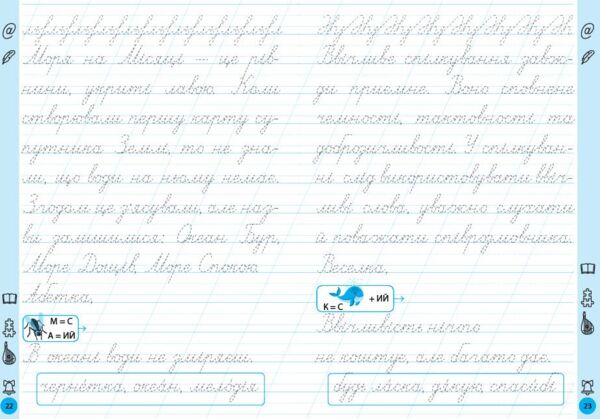 Моря на Місяці — це рів-
нини, укриті лавою. Коли
створювали першу карту су-
путника Землі, то не зна-
ли, що води на ньому немає.
Згодом це з'ясували, але наз-
ви залишилися: Океан Бур,
Море Дощів, Море Спокою.
Абетка,
М = С
А = ИЙ
В океані води не зміряєш.
чернетка, океан, мелодія
22
Ввічливе спілкування завж-
ди приємне. Воно сповнене
чемності, тактовності та
доброзичливості. У спілкуван-
ні слід використовувати ввіч-
ливі слова, уважно слухати
й поважати співрозмовника.
Веселка,
К = С
+ ИЙ
Ввічливість нічого
не коштує, але багато дає.
будь ласка, дякую, спасибі
23